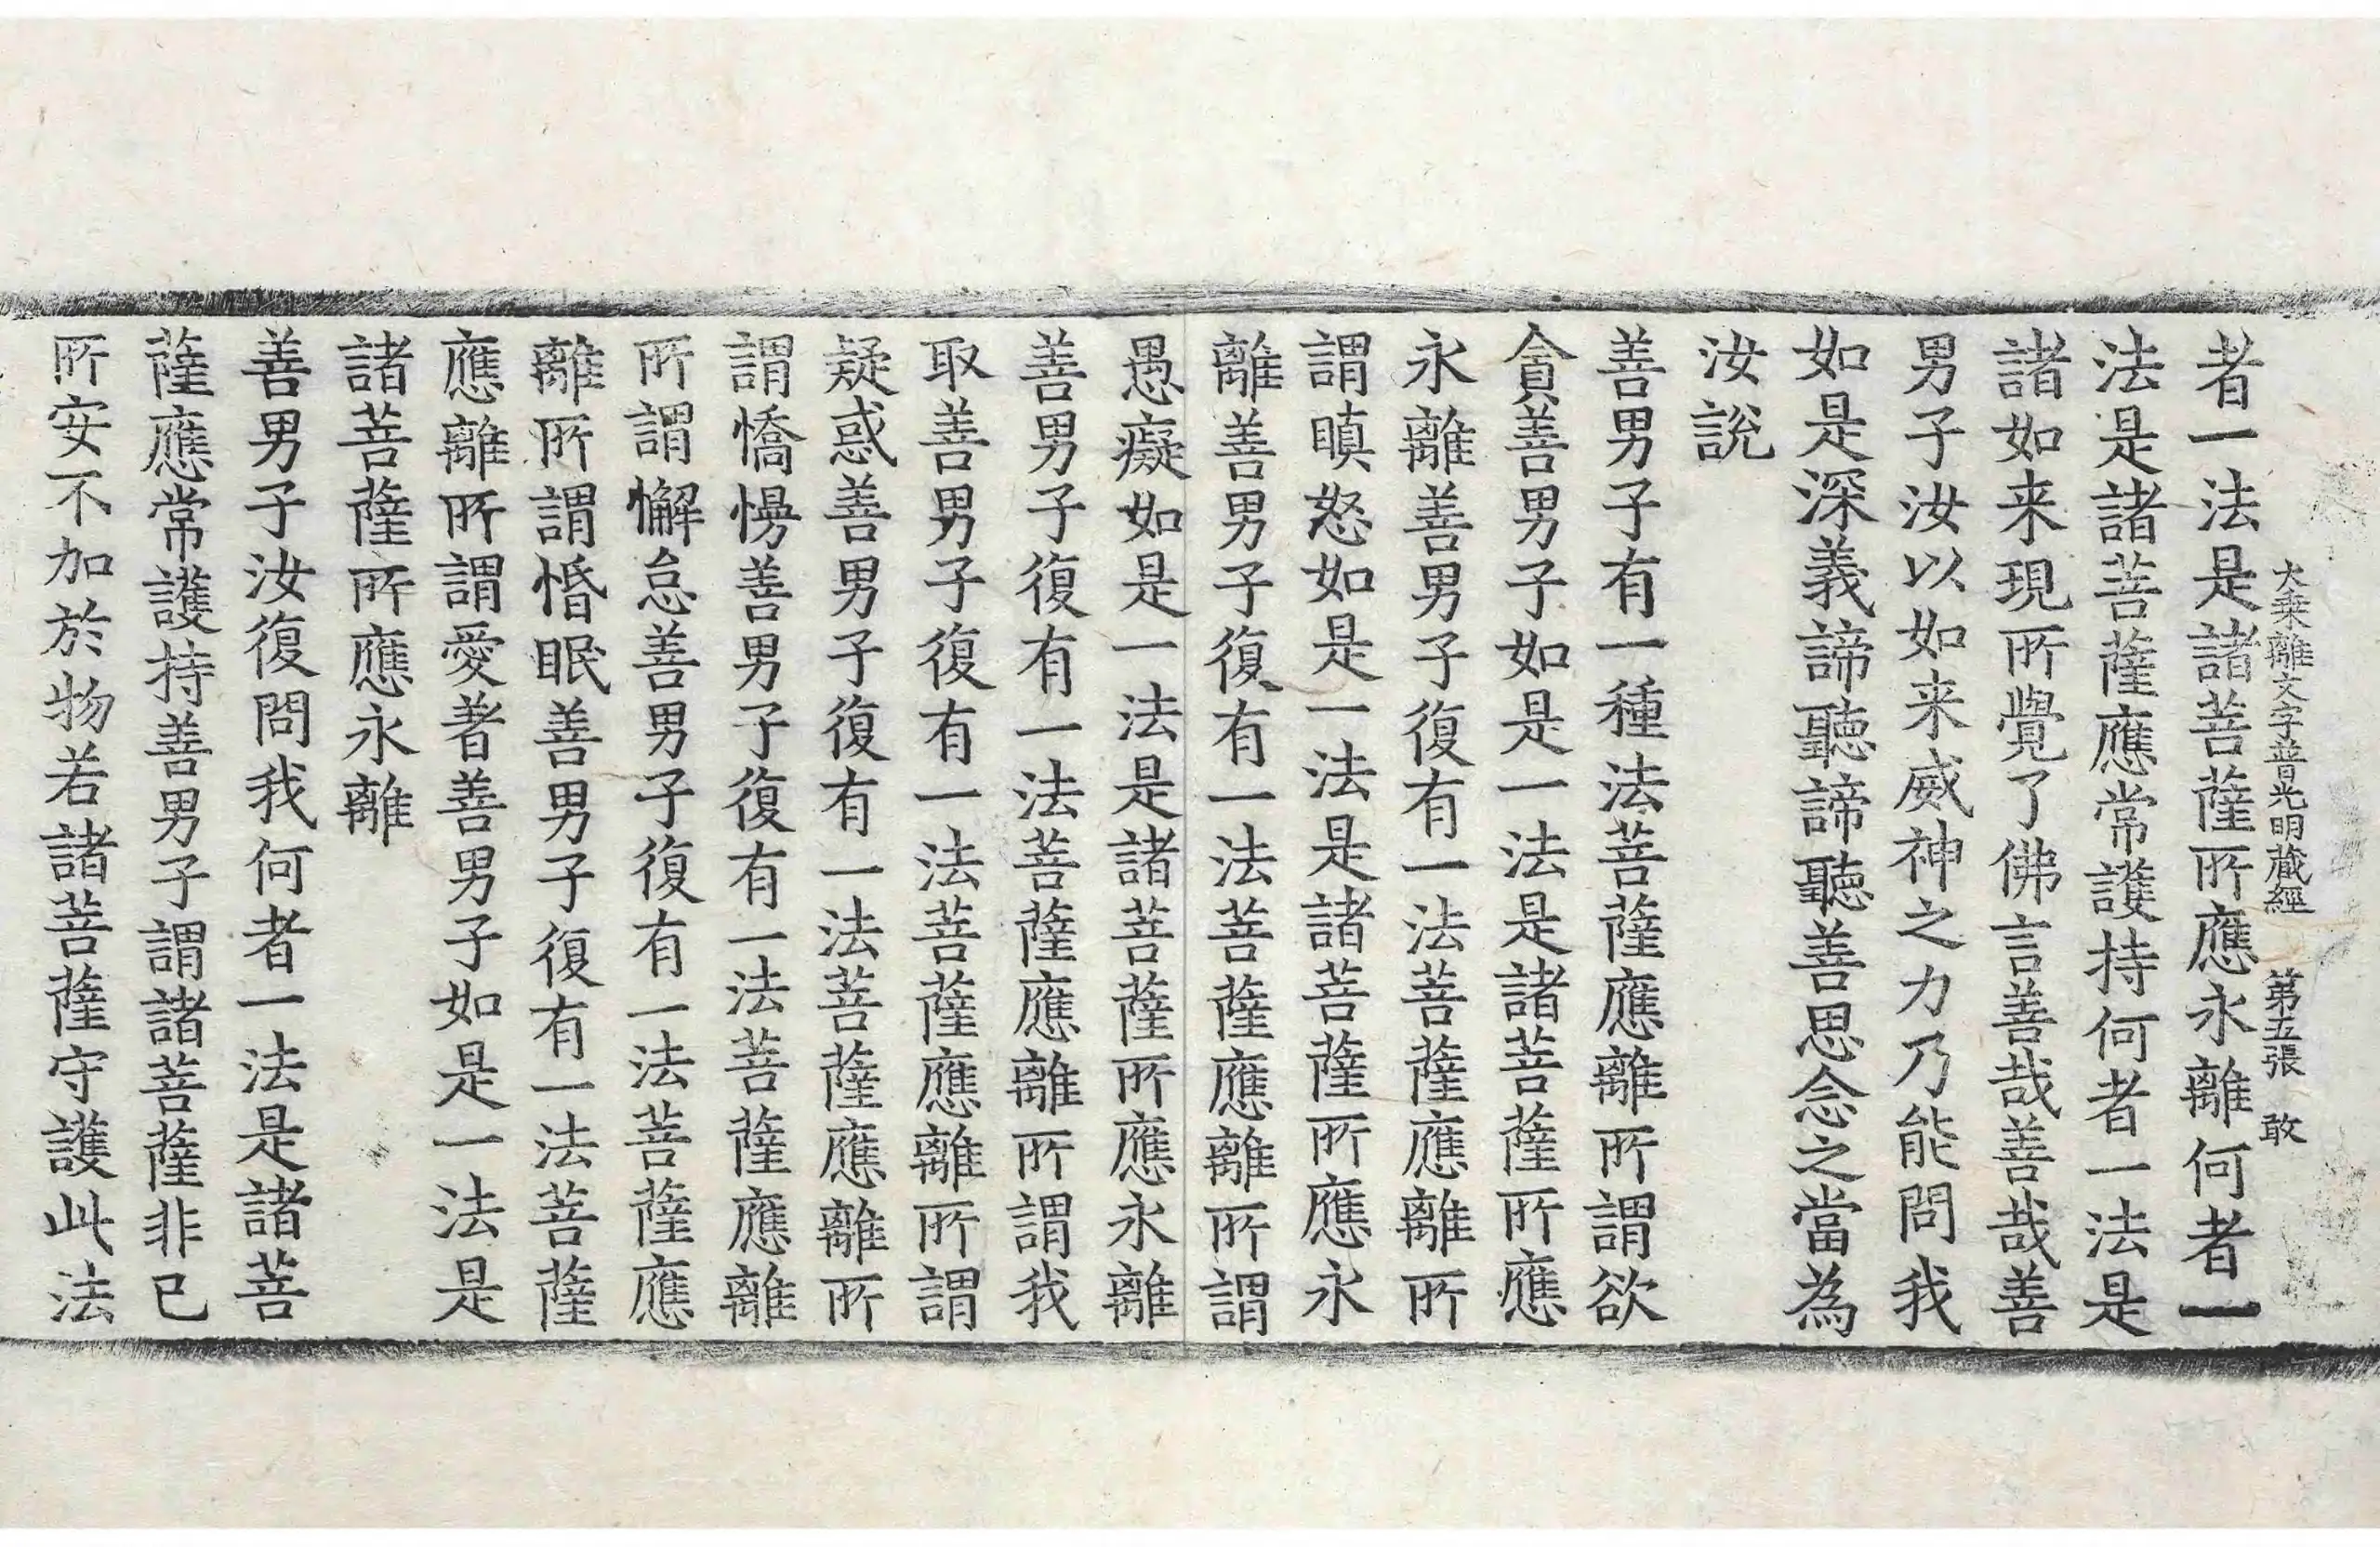 大乘離文字普光明藏經　第五張　敢
者一法是諸菩薩所應永離何者一
法是諸菩薩應常護持何者一法是
諸如来現所覺了佛言善哉善哉善
男子汝以如来威神之力乃能問我
如是深義諦聽諦聽善思念之當為
汝說
善男子有一種法菩薩應離所謂欲
貪善男子如是一法是諸菩薩所應
永離善男子復有一法菩薩應離所
謂瞋怒如是一法是諸菩薩所應永
離善男子復有一法菩薩應離所謂
愚癡如是一法是諸菩薩所應永離
善男子復有一法菩薩應離所謂我
取善男子復有一法菩薩應離所謂
疑惑善男子復有一法菩薩應離所
謂憍慢善男子復有一法菩薩應離
所謂懈怠善男子復有一法菩薩應
離所謂惛眠善男子復有一法菩薩
應離所謂愛著善男子如是一法是
諸菩薩所應永離
善男子汝復問我何者一法是諸菩
薩應常護持善男子謂諸菩薩非己
所安不加於物若諸菩薩守護此法